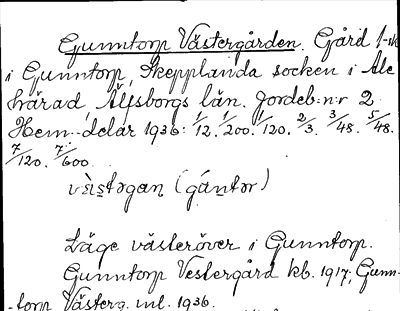 Gunntorp Västergården. Gård 1-sk
i Gunntorp, Skepplanda socken i Ale
härad Älfsborgs län. Jordeb:n:r 2
Hem.-delar 1936: 1/12. 1/200. 1/120. 2/3. 3/48. 5/48.
7/120. 7/600.
(gántər)
Läge västeröver i Gunntorp.
Gunntorp Vestergård kb. 1917; Gunn-
-torp Västerg. ml. 1936.